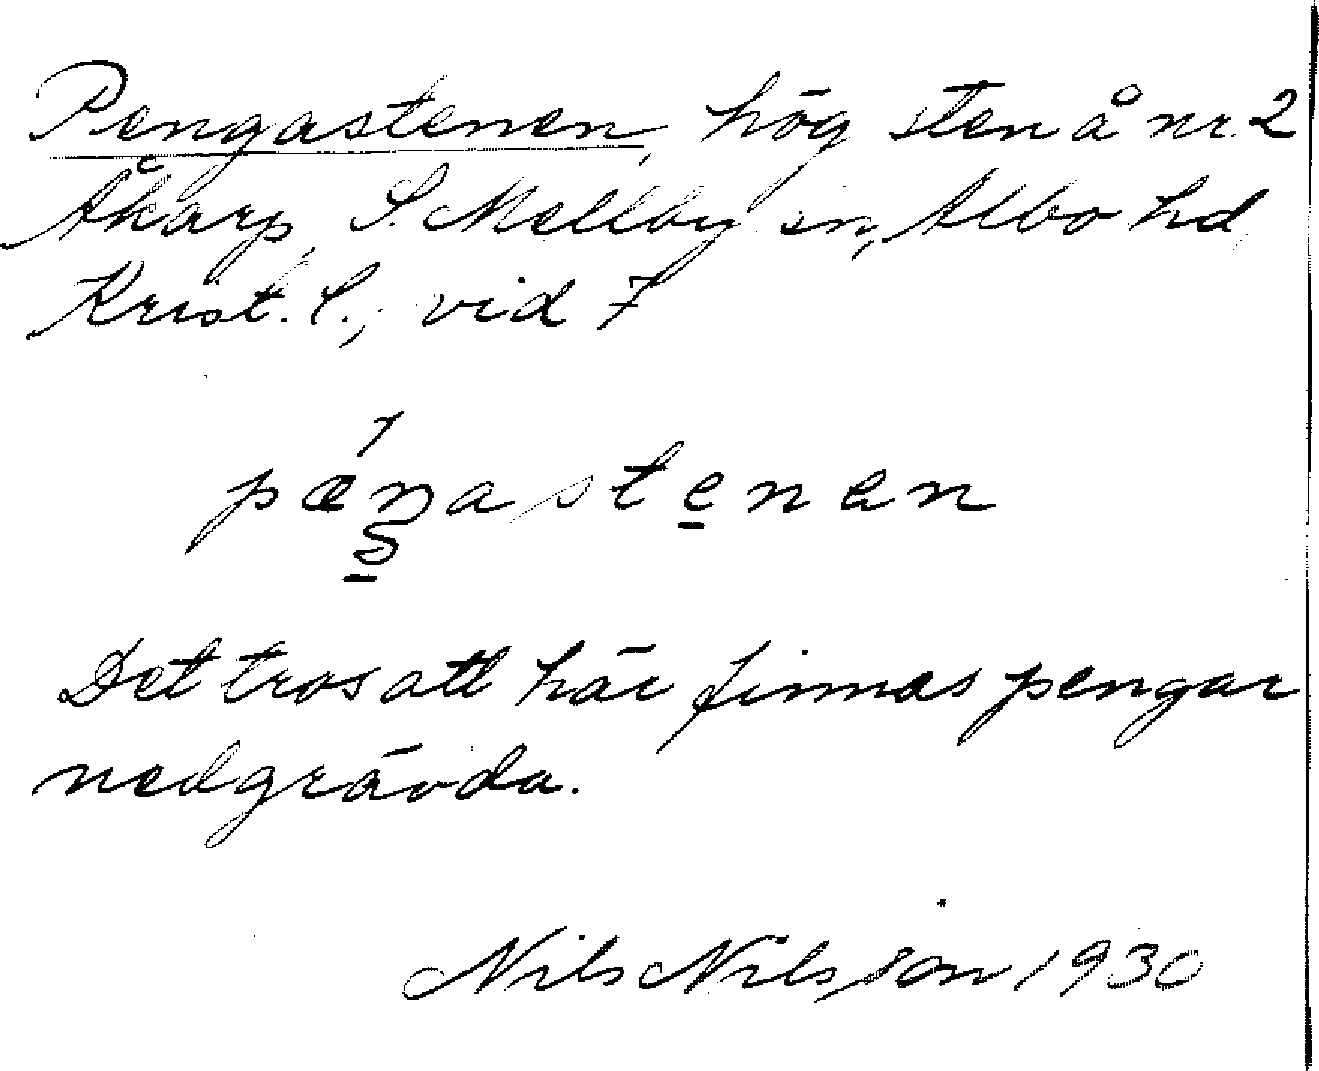 Pengastenen, hög sten å nr 2
Åkarp, S. Mellby sn, Albo hd,
Krist. l., vid 7
pæ´ŋastenen
Det tros att här finnas pengar
nedgrävda.
Nils Nilsson 1930